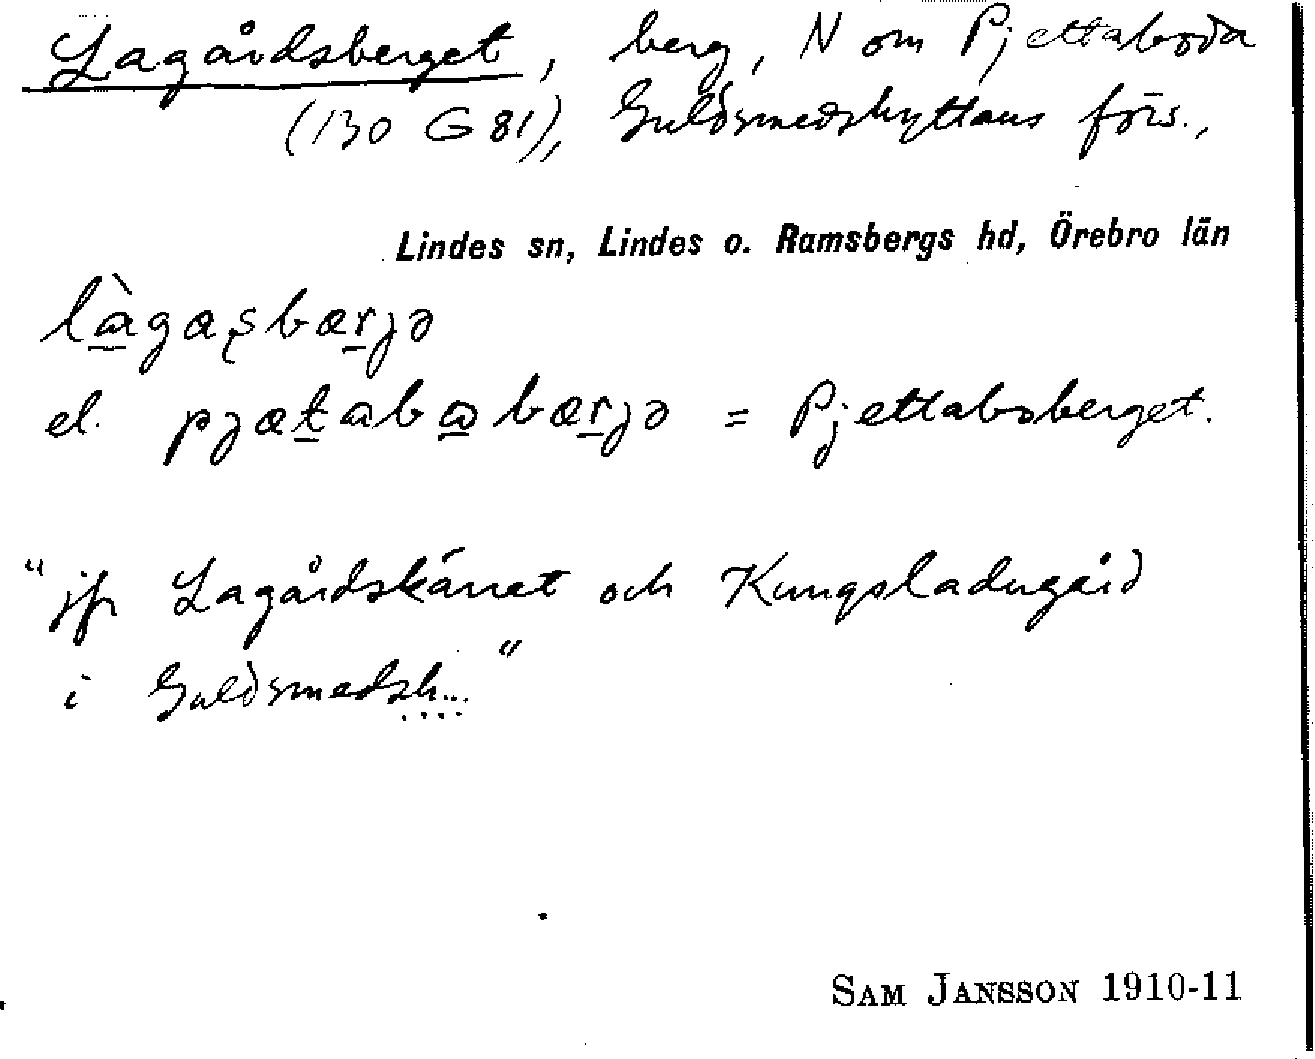 Lagårdsberget, berg, N om Pjettaboda
(130 G 81), Guldsmedshyttans förs.,
Lindes sn, Lindes o. Ramsbergs hd, Örebro län
làgaʂbærjə
el. pjætabωbærjə = Pjettaboberget.
"jfr Lagårdskärret och Kungsladugård
i Guldsmedsh..."
SAM JANSSON 1910-11